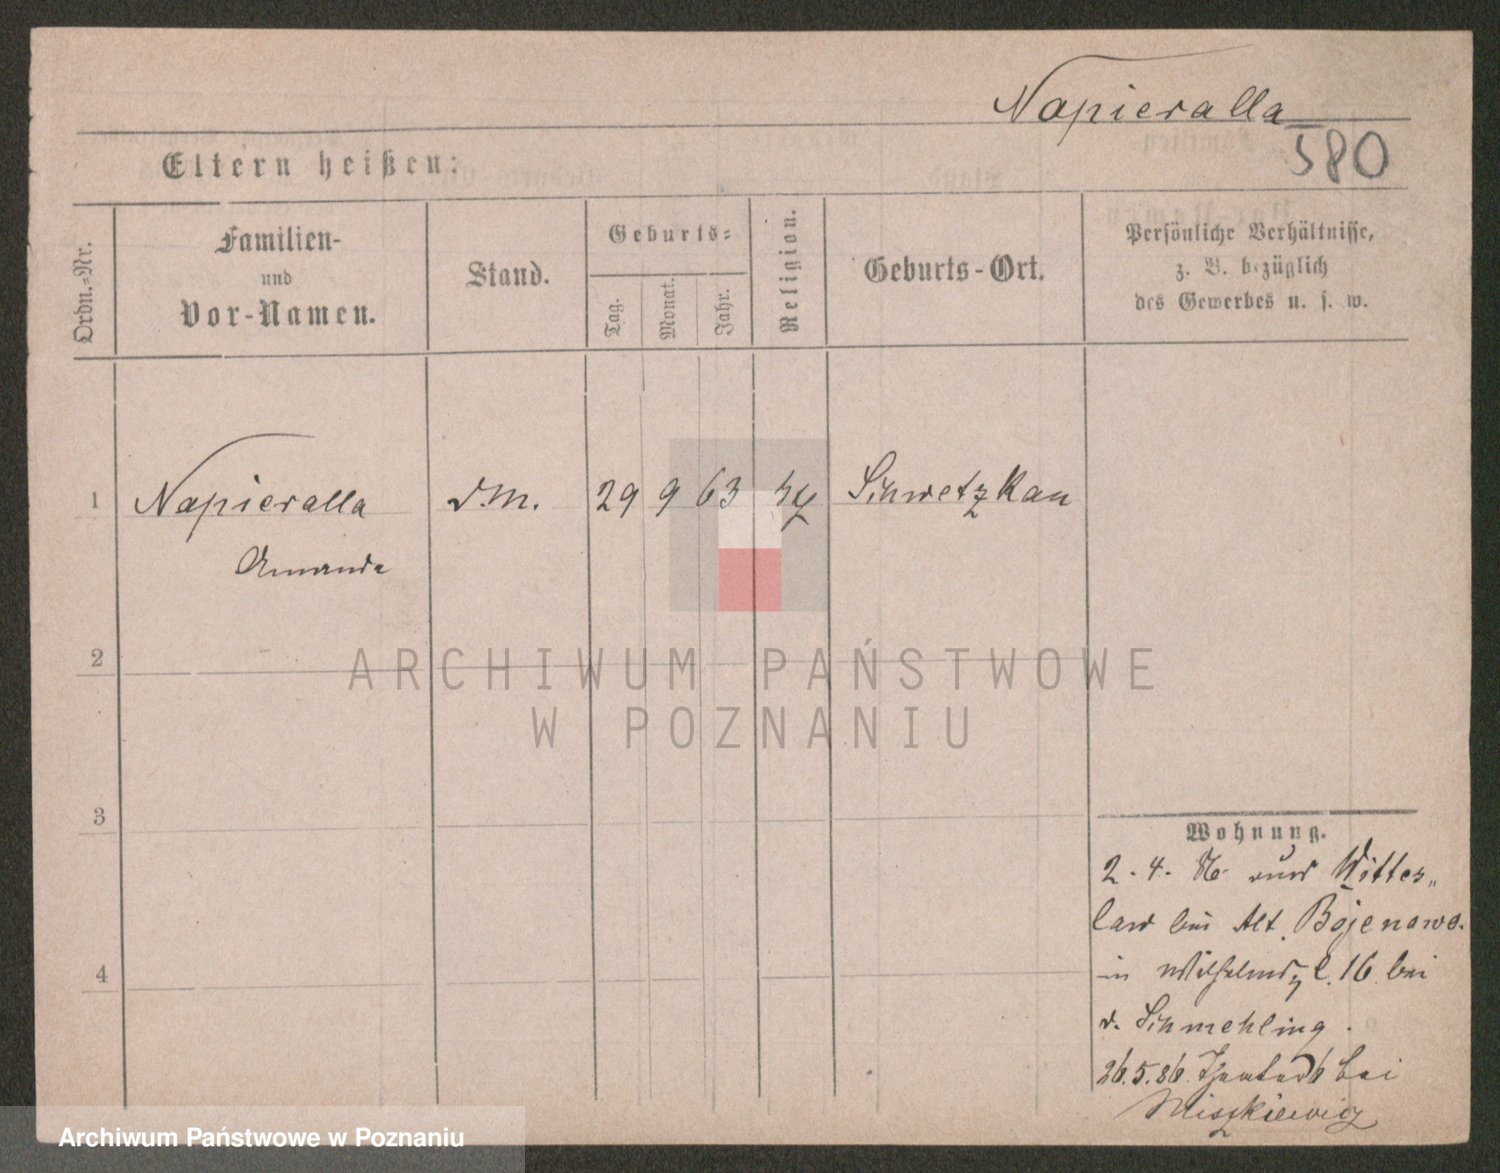 Napieralla
580
Eltern heißen:
Ordn.-Nr.
Familien-
und
Vor-Namen.
Stand.
Geburts-
Tag.
Monat.
Jahr.
Religion.
Geburts-Ort.
Persönliche Verhältnisse,
z. B. bezüglich
des Gewerbes u. s. w.
1
Napieralla
Amanda
d.M.
29 9 63
Schwetzkau
2
ARCHIWUM PAŃSTWOWE
W POZNANIU
3
Wohnung.
2. 4. 86
law bei Alt Bojenowo.
in l. 16 bei
d. Schmehling.
4
26. 5. 86 6 bei
Miszkiewicz
Archiwum Państwowe w Poznaniu